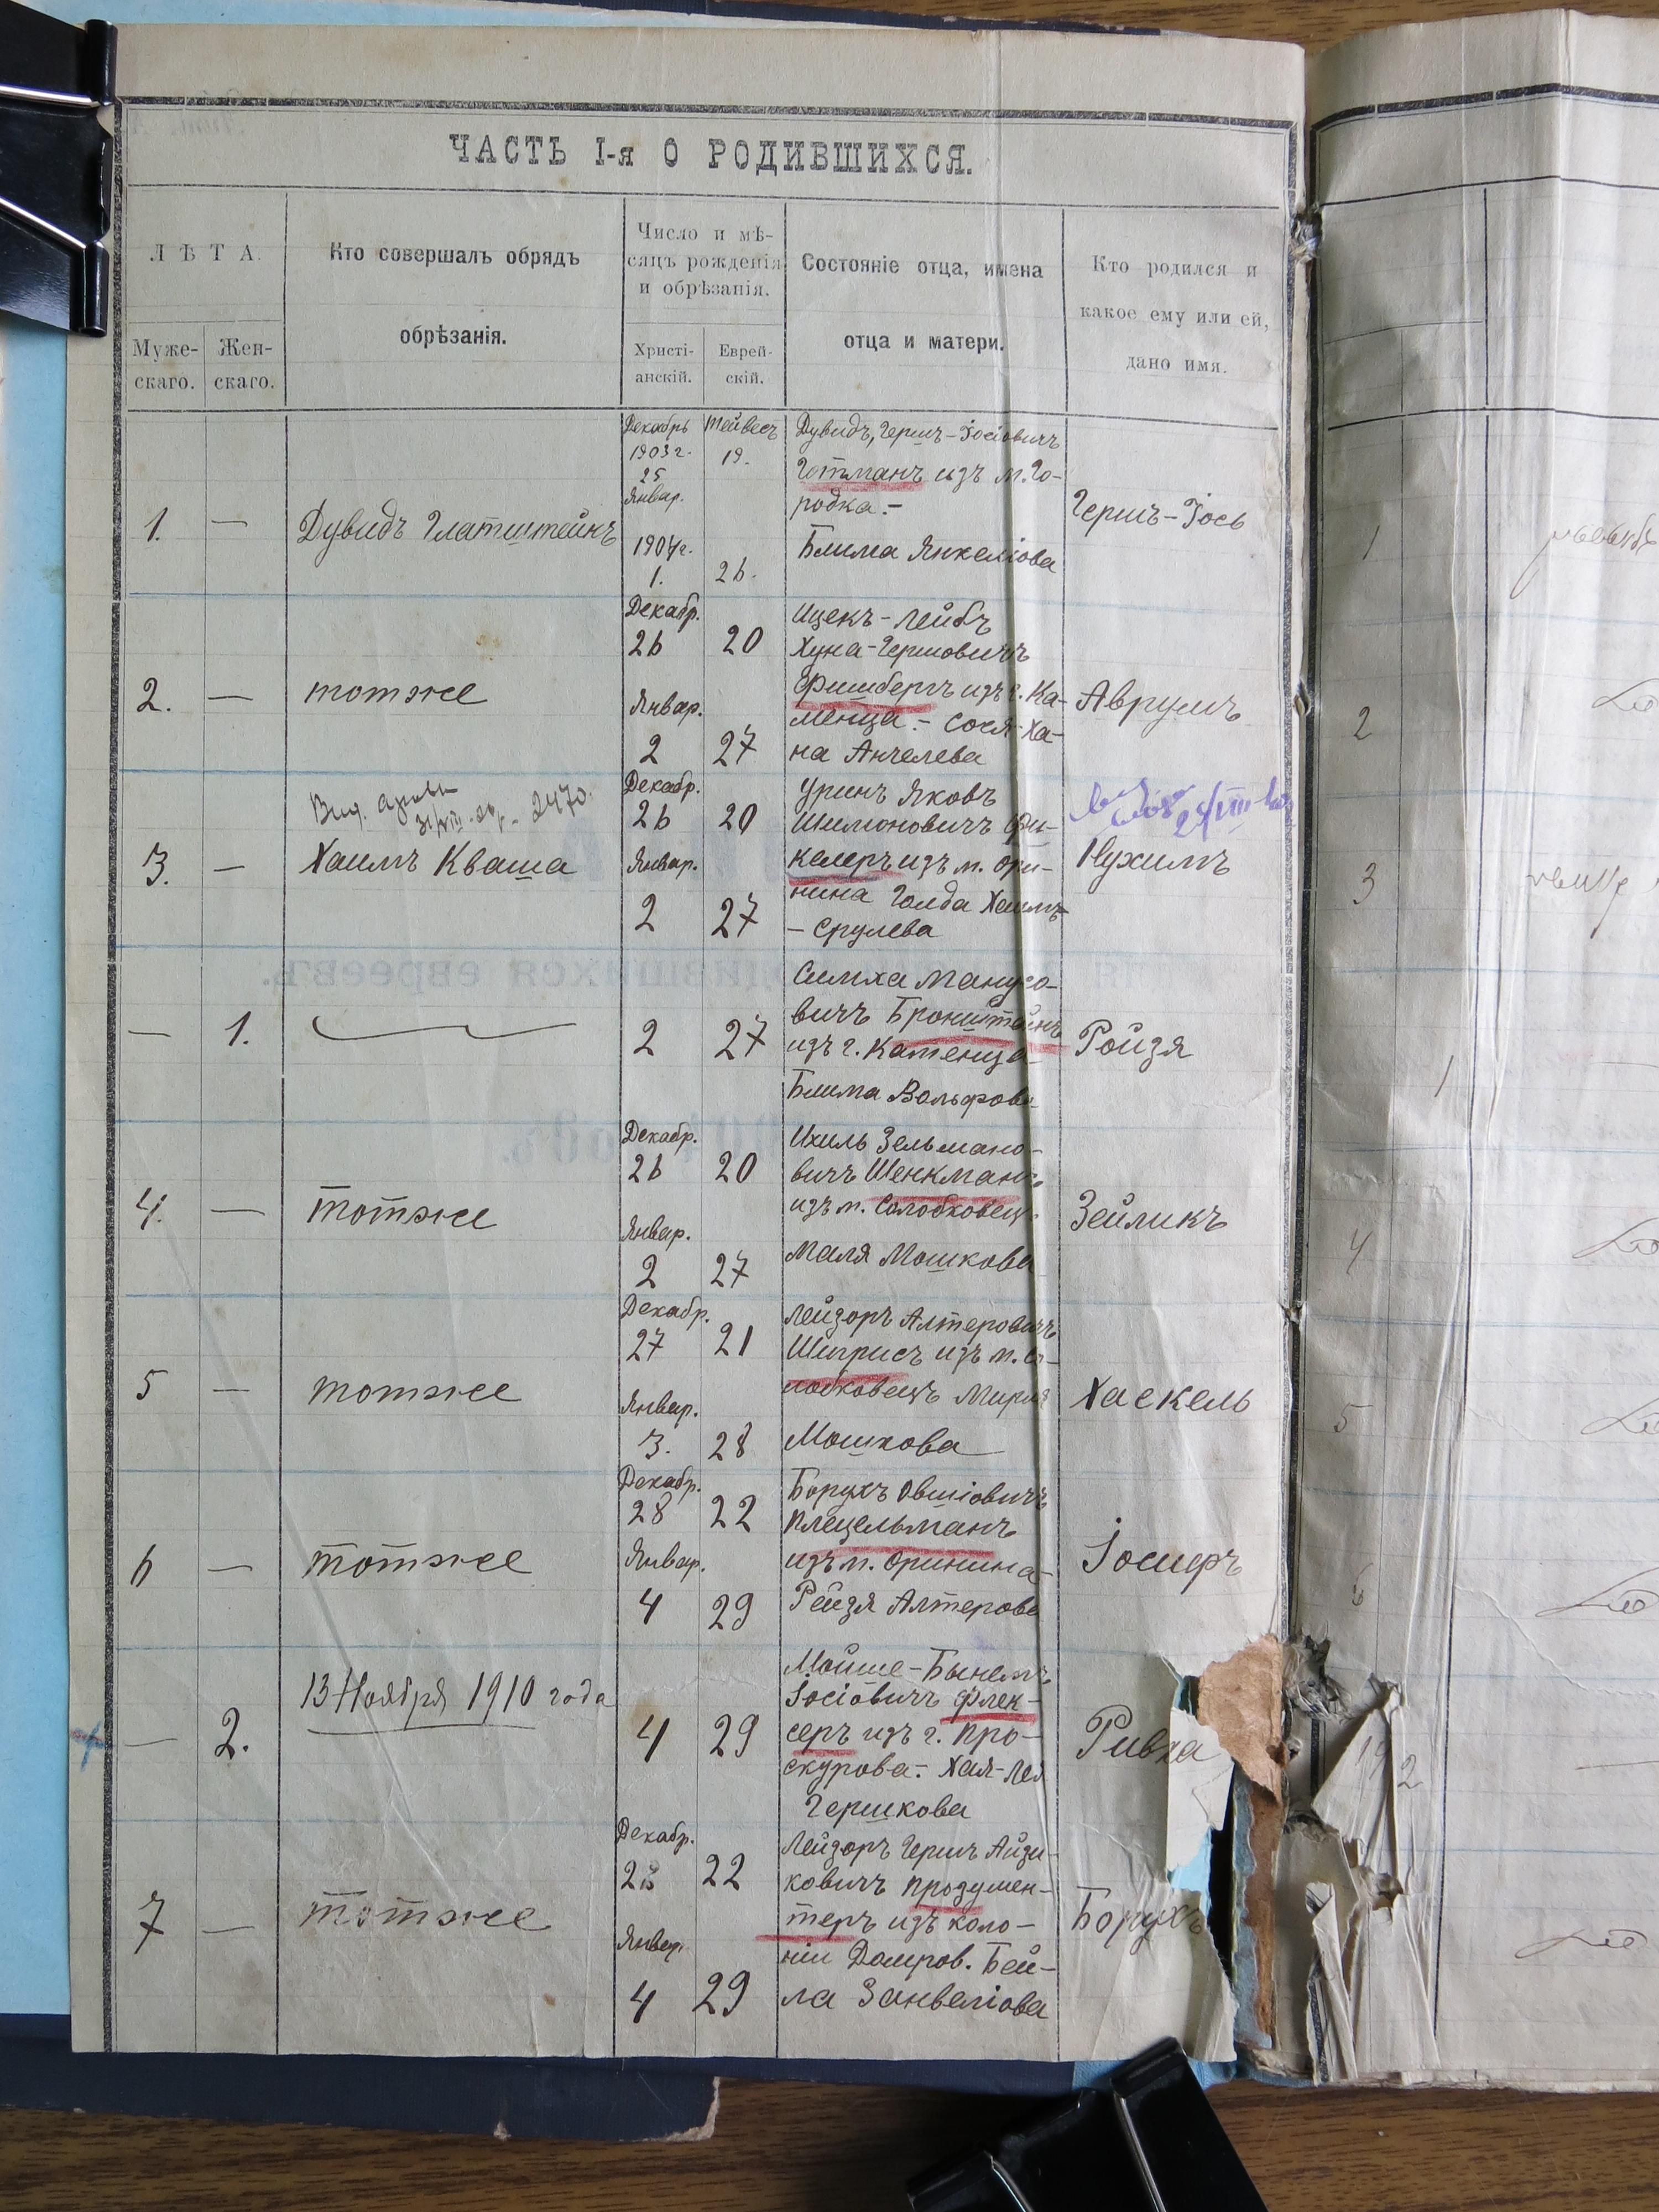 ЧАСТЬ I-я О РОДИВШИХСЯ.
ЛѢТА.
Муже-
скаго.
Жен-
скаго.
Кто совершалъ обрядъ
обрѣзанія.
Число и мѣ-
сяцъ рожденія
и обрѣзанія.
Христі-
анскій.
Еврей-
скій.
Состояніе отца, имена
отца и матери.
Кто родился и
какое ему или ей,
дано имя.
1. —
Дувидъ Глатштейнъ
Декабрь
1903 г.
25
Январ.
1904 г.
1.
Тейвесъ
19.
26.
Дувидъ, Гершъ-Іосіовичъ
Готманъ изъ м. Го-
родка.-
Блима Янкеліова
Гершъ-Іось
2. —
тотже
Декабр.
26 20
Январ.
2 27
Ицекъ-Лейбъ
Хуна-Гершовичъ
Фишбергъ изъ г. Ка-
менца.- Сося-Ха-
на Анчелева
Аврумъ
3. —
2470.
Хаимъ Кваша
Декабр.
26 20
Январ.
2 27
Уринъ Яковъ
Шимоновичъ Фи-
келеръ изъ м. Ори-
нина Голда Хаимъ-
- Срулева
Нухимъ
— 1.
2 27
Симха Манусо-
вичъ Бронштейнъ
изъ г. Каменца-
Блима Вольфова
Ройзя
4. —
тотже
Декабр.
26 20
Январ.
2 27
Ихиль Зельмано-
вичъ Шенкманъ
изъ м. Солобковецъ
Маля Мошкова
Зейликъ
5 —
тотже
Декабр.
27 21
Январ.
3. 28
Лейзоръ Алтеровичъ
изъ м. Со-
лобковецъ
Мошкова
Хаскель
6 —
тотже
Декабр.
28 22
Январ.
4 29
Борухъ Овшіовичъ
Плецельманъ
изъ м. Оринина-
Рейзя Алтерова
Іосифъ
— 2.
13 Ноября 1910 года
4 29
Мойше-Бынемъ
Іосіовичъ Флек-
серъ изъ г. Про-
скурова.- Хая-Лея
Гершкова
Ривка
7 —
тотже
Декабр.
28 22
Январ.
4 29
Лейзоръ Гершъ Айзи-
ковичъ Продумен-
теръ изъ коло-
ніи Доมโรв. Бей-
ла Занвеліова
Борухъ
1
2
3
1
4
5
6
2